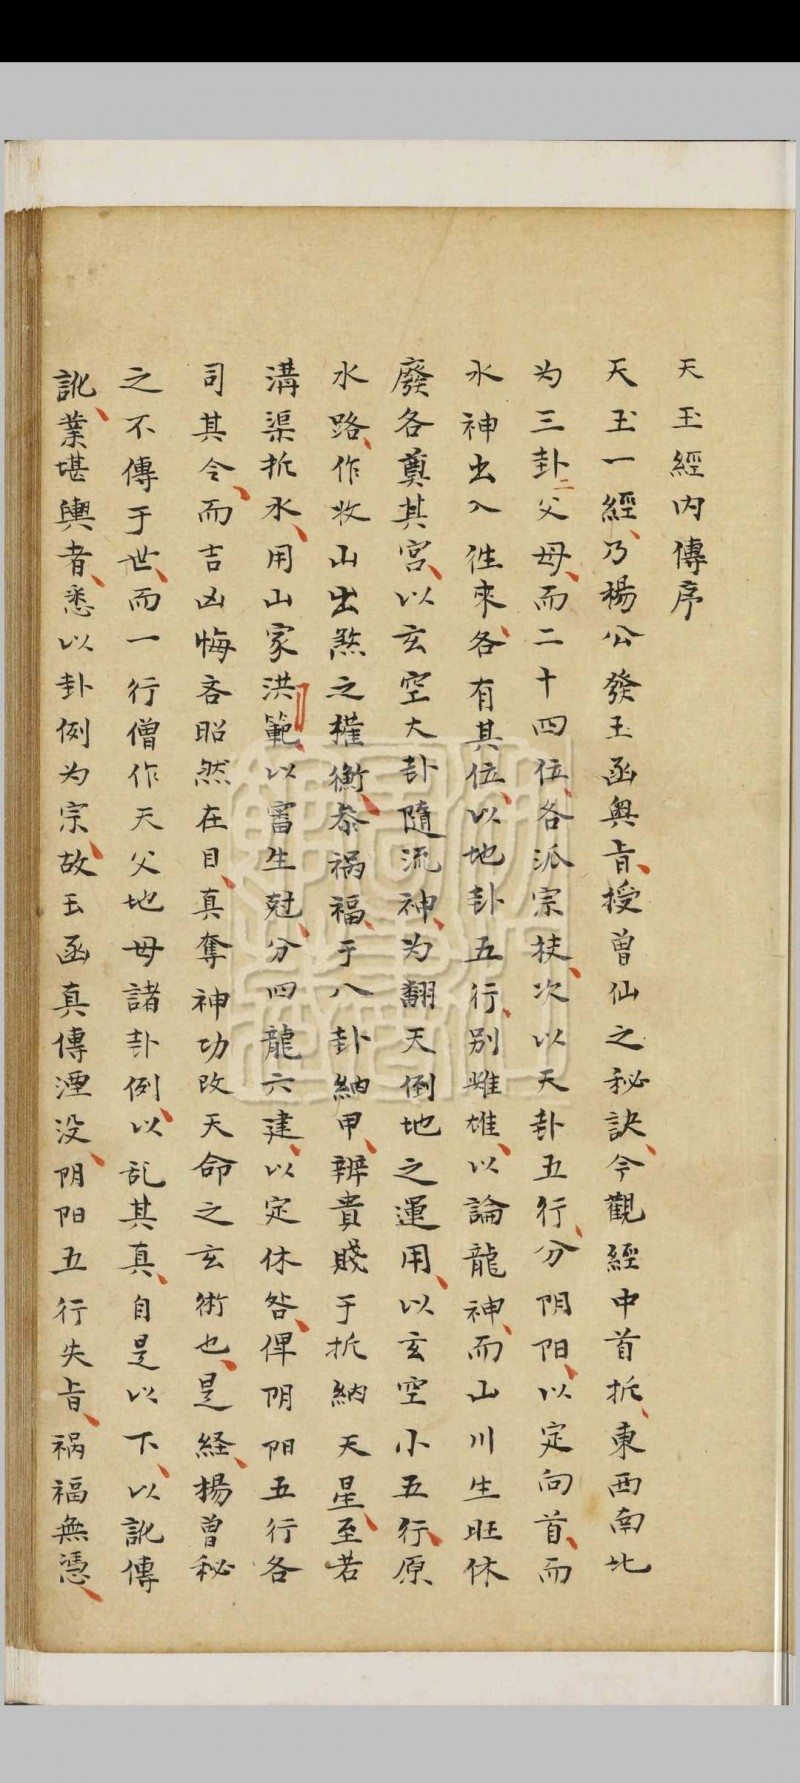 天玉經內傳序
天玉一經乃楊公發玉函輿旨授曾仙之秘訣今觀經中首折東西南北
为三卦二父母而二十四位各派宗挟次以天卦五行分阴阳以定向首而
水神出入徃來各有其位以地卦五行别雌雄以論龍神而山川生旺休
廢各奠其宮以玄空大卦隨流神为翻天倒地之運用以玄空小五行原
水路作收山出煞之權衡叅祸福于八卦納甲辨貴賤于折納天星至若
溝渠折水用山家洪範以審生尅分四龍六建以定休咎俾阴阳五行各
司其令而吉凶悔吝昭然在目真奪神功改天命之玄術也是経楊曾秘
之不傳于世而一行僧作天父地母諸卦例以乱其真自是以下以訛傳
訛業堪輿者悉以卦例为宗故玉函真傳湮没阴阳五行失旨祸福無憑